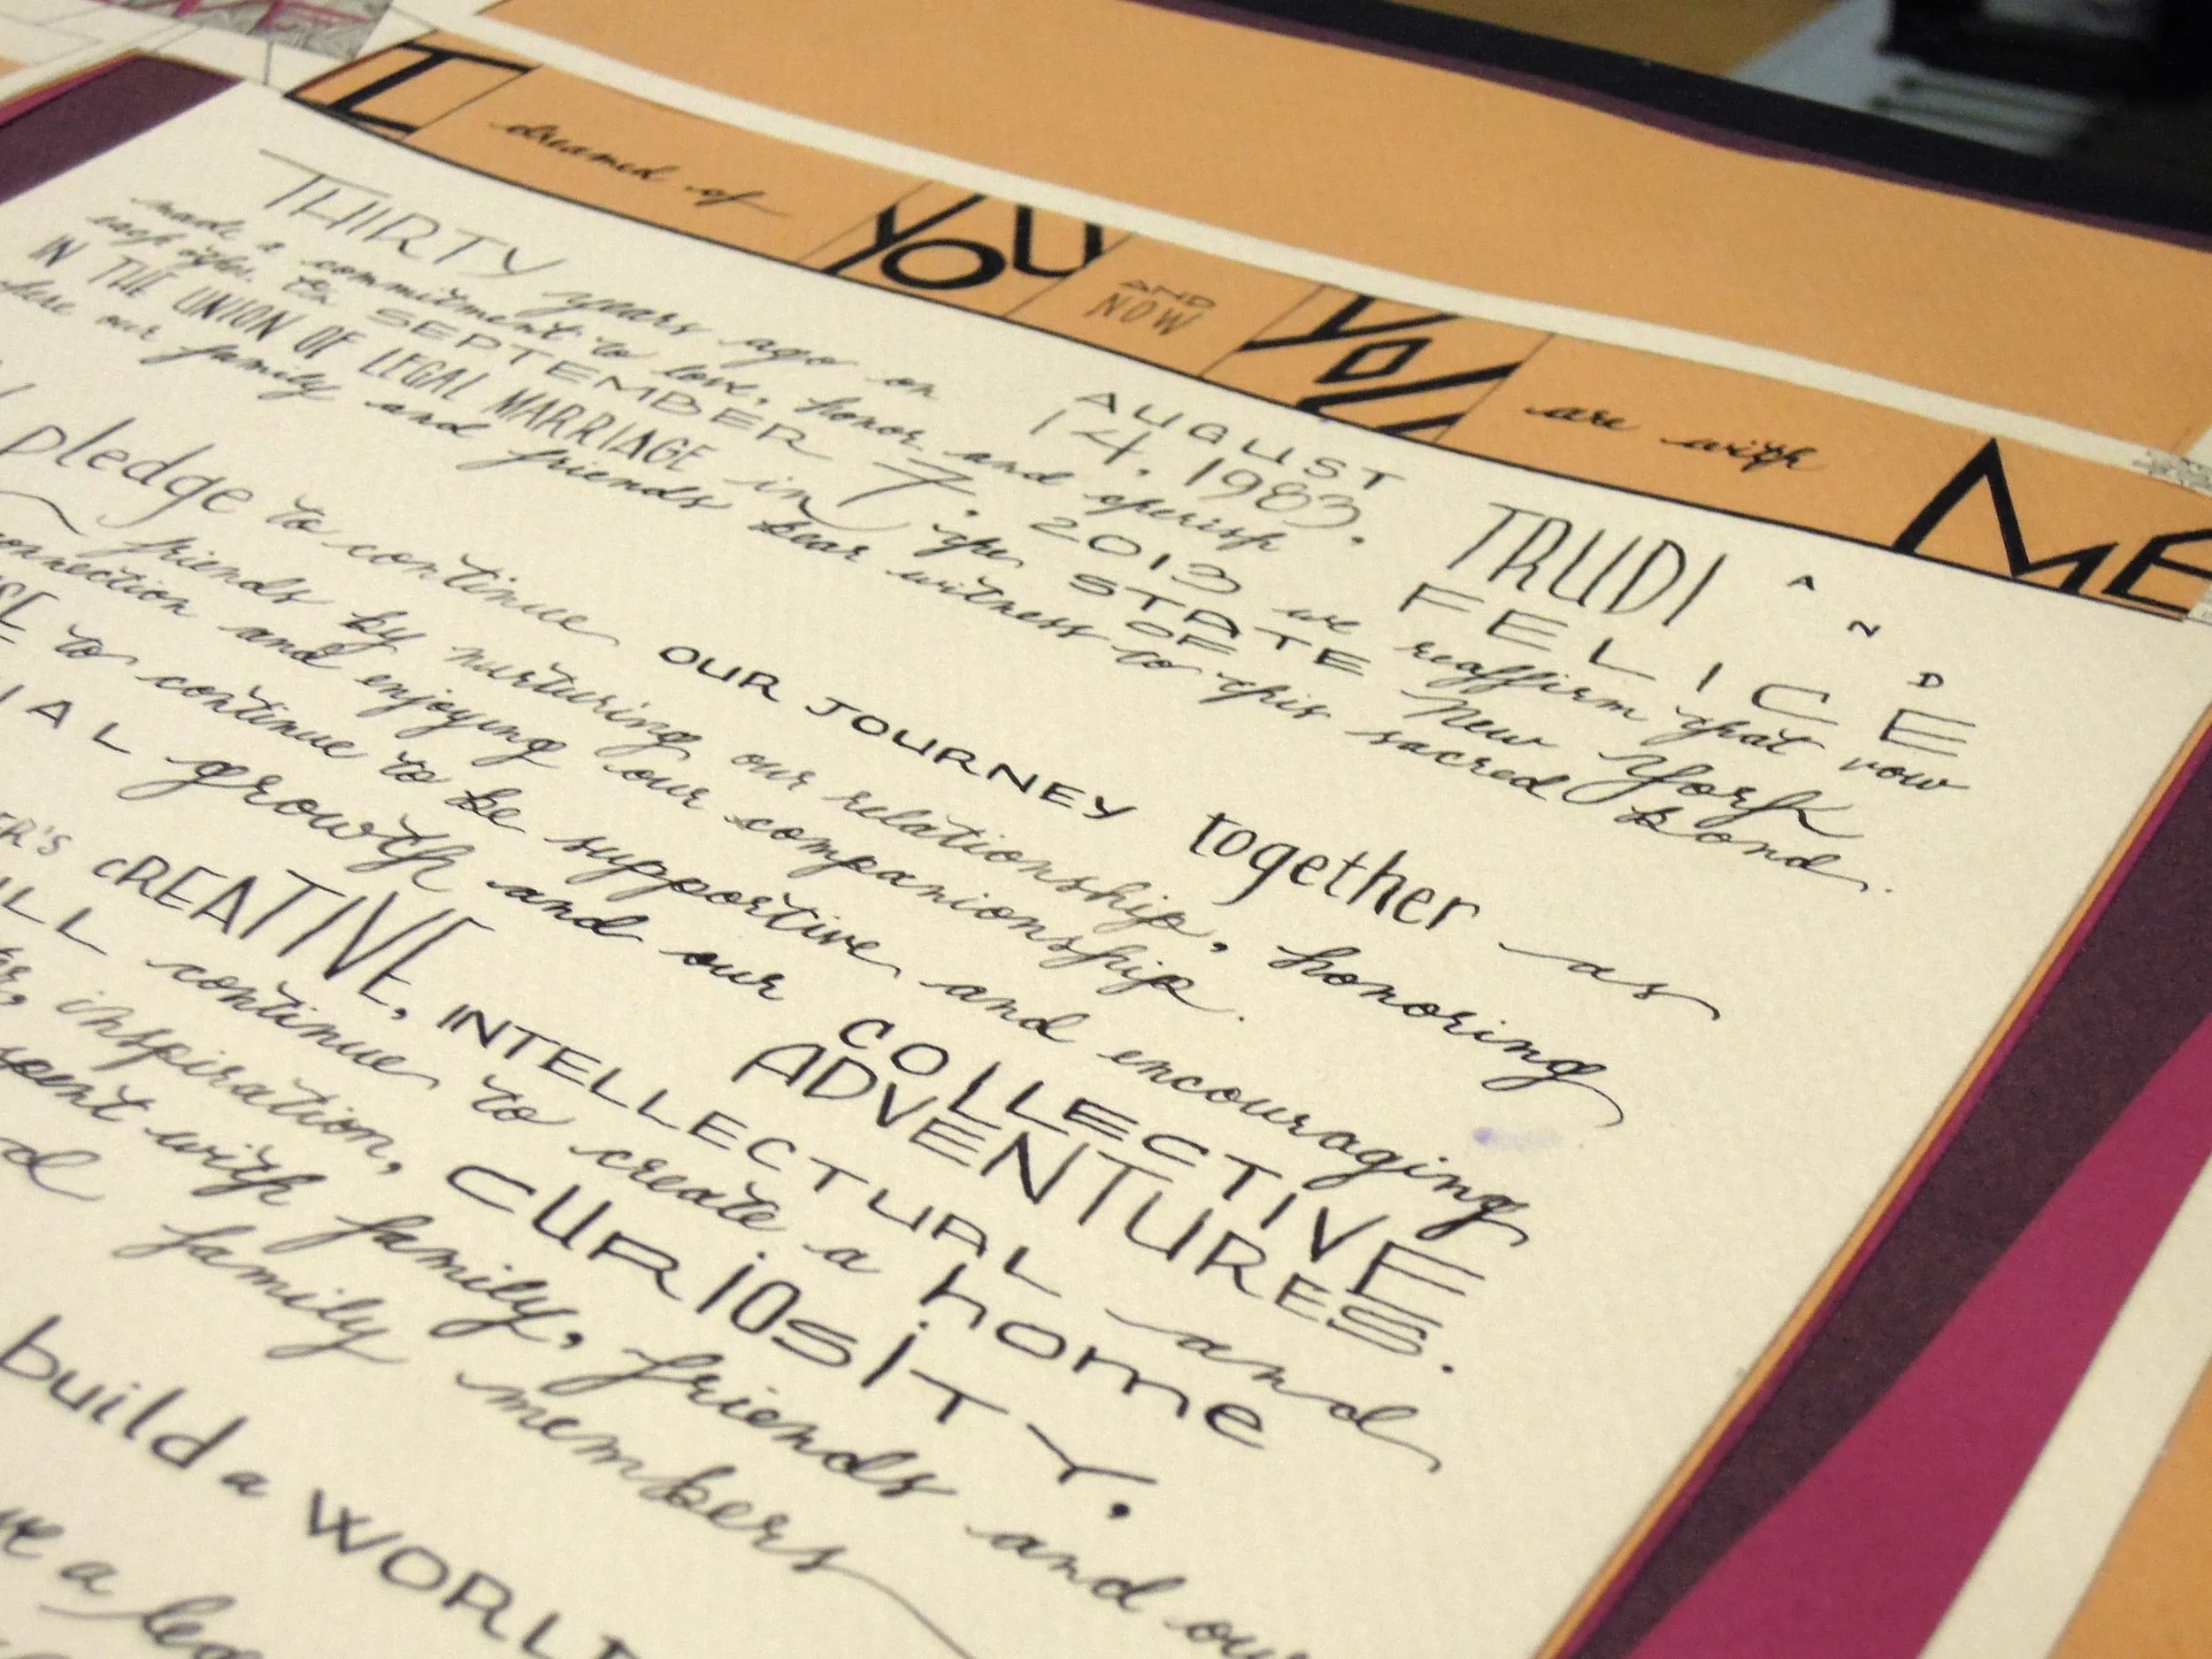 I dreamed of YOU AND NOW YOU are with ME
THIRTY years ago on AUGUST 14, 1983, TRUDI AND FELICE
made a commitment to love, honor and cherish
each other. On SEPTEMBER 7, 2013 we reaffirm that vow
IN THE UNION OF LEGAL MARRIAGE in the STATE OF New York
here our family and friends bear witness to this sacred bond.
pledge to continue OUR JOURNEY together as
friends by nurturing our relationship, honoring
connection and enjoying our companionship.
to continue to be supportive and encouraging
growth and our COLLECTIVE ADVENTURES.
CREATIVE, INTELLECTUAL and
continue to create a home
inspiration, CURIOSITY,
spent with family, friends and our
family members
build a WORLD
a